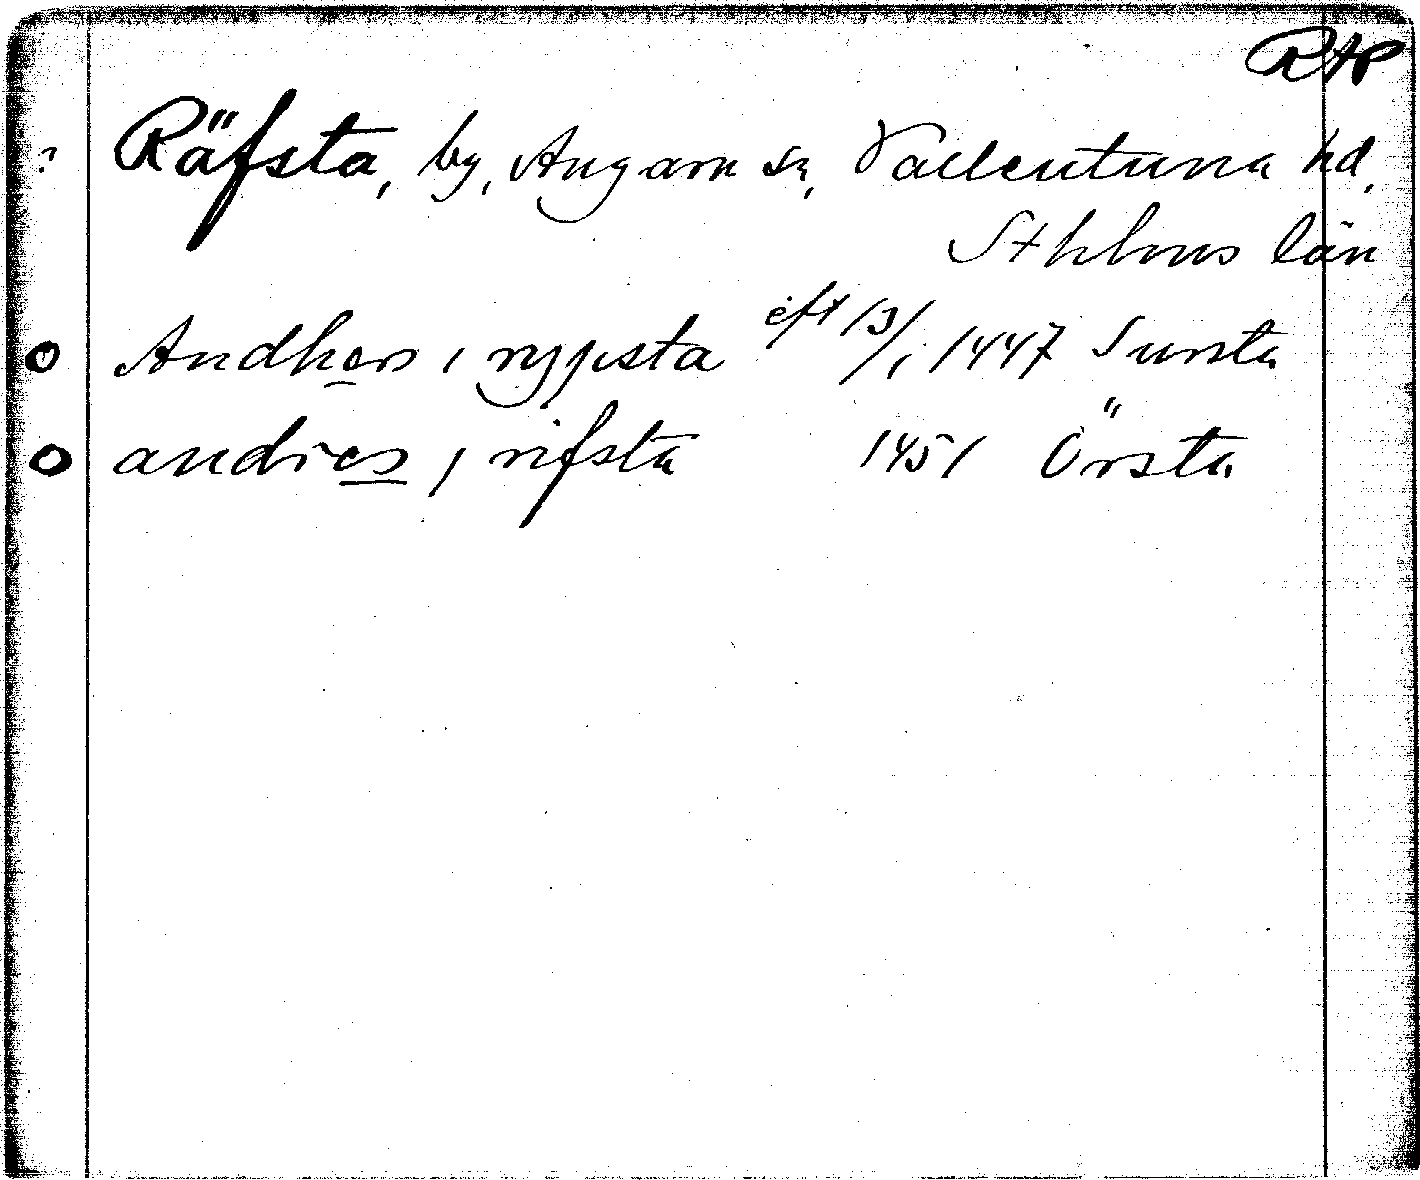 RAP
? Räfsta, by, Angarn sn, Vallentuna hd,
Sthlms län
Andhers i rypsta eft 13/1 1447 Sursta
andres i rifsta 1451 Örsta